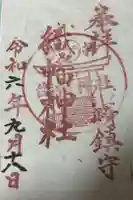 奉拝
鎮守
織幡神社
令和六年九月十六日